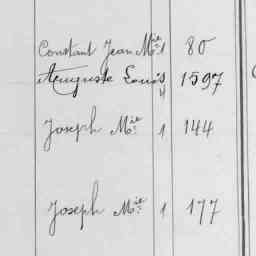 Constant Jean Mie 1 80
Auguste Louis 4 1597
Joseph Mie 1 144
Joseph Mie 1 177